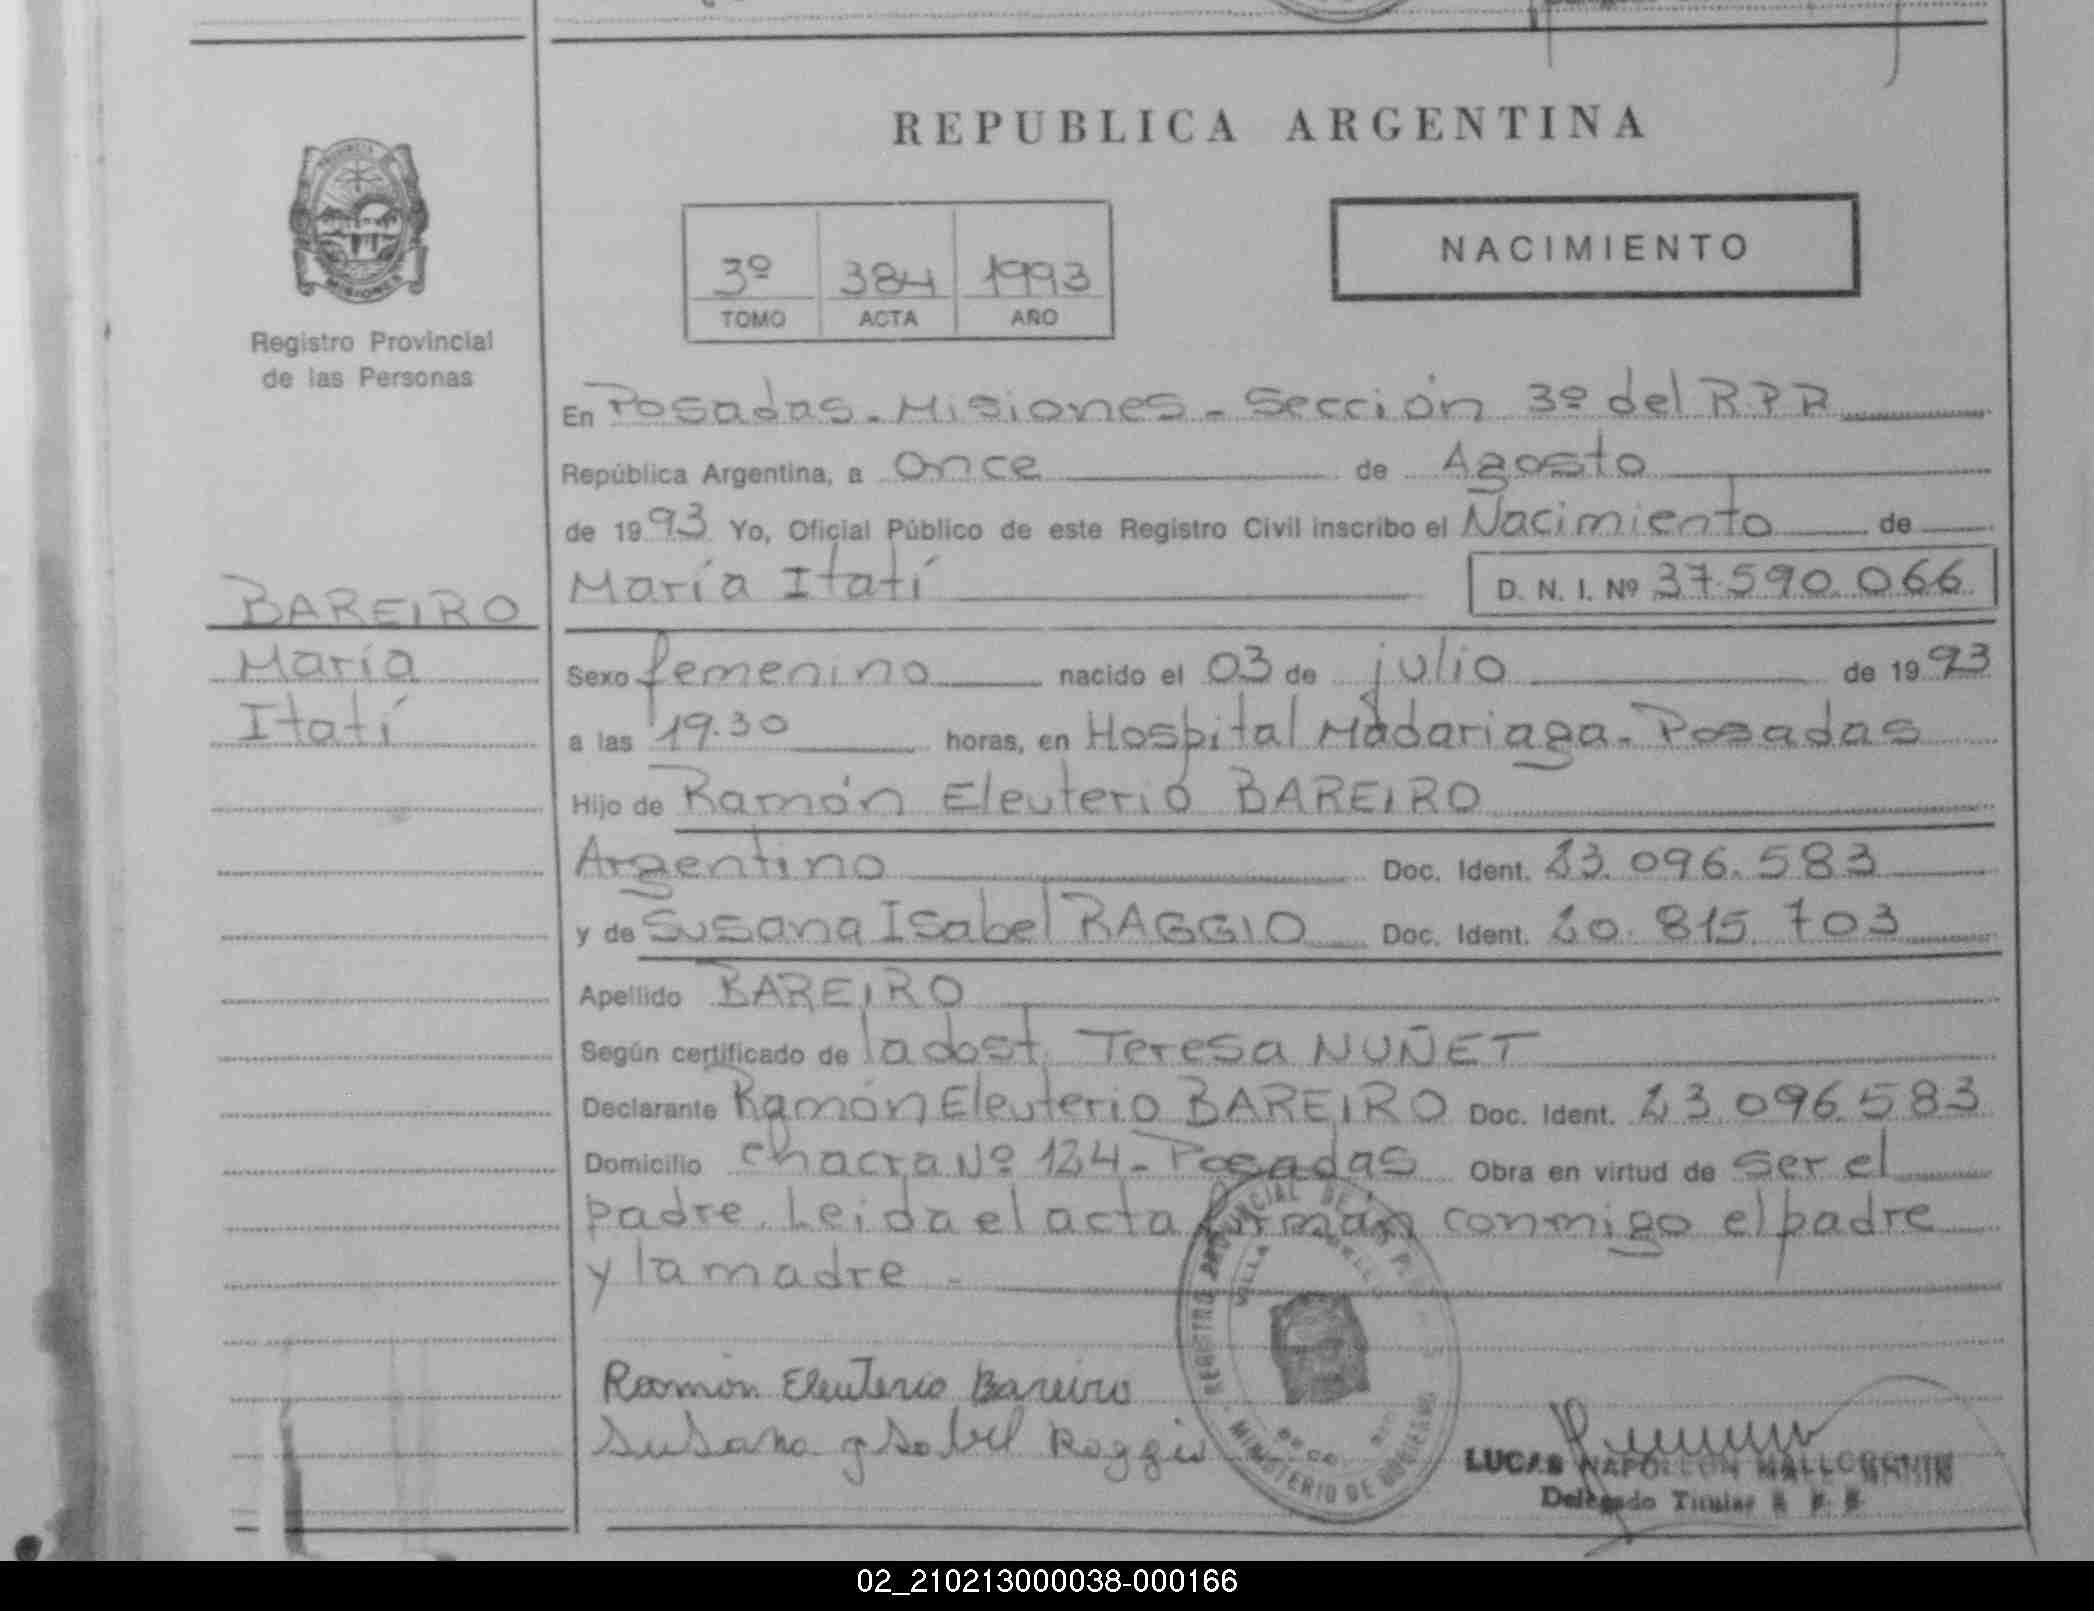 REPUBLICA ARGENTINA
NACIMIENTO
3º 384 1993
TOMO ACTA AÑO
MISIONES
Registro Provincial
de las Personas
En Posadas - Misiones - Sección 3º del RPP
República Argentina, a Once de Agosto
de 1993 Yo, Oficial Público de este Registro Civil inscribo el Nacimiento de
María Itatí D. N. I. Nº 37.590.066
BAREIRO
María
Itatí
Sexo femenino nacido el 03 de julio de 1993
a las 19.30 horas, en Hospital Madariaga - Posadas
Hijo de Ramón Eleuterio BAREIRO
Argentino Doc. Ident. 23.096.583
y de Susana Isabel RAGGIO Doc. Ident. 20.815.703
Apellido BAREIRO
Según certificado de la obst. Teresa NUÑET
Declarante Ramón Eleuterio BAREIRO Doc. Ident. 23.096.583
Domicilio chacra Nº 124 - Posadas Obra en virtud de ser el
padre. Leida el acta firman conmigo el padre
y la madre -
REGISTRO PROVINCIAL DE LAS
VILLA
MINISTERIO DE GOBIERNO
Ramón Eleuterio Bareiro
Susana Ysabel Raggio
LUCAS NAPOLEON
Delegado Titular R. P. P.
02_210213000038-000166